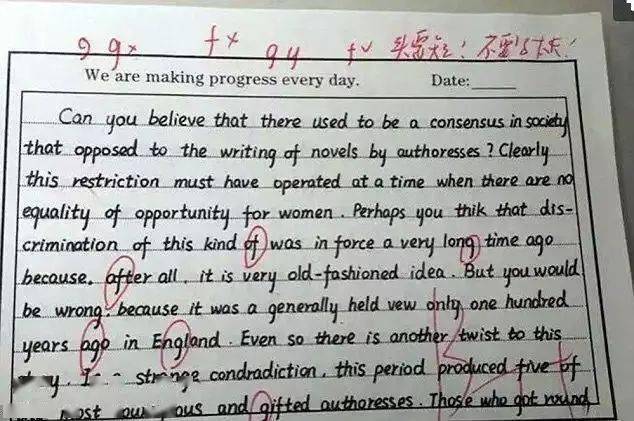 g g x f x g y f v 头需短! 不要
We are making progress every day. Date:
Can you believe that there used to be a consensus in society
that opposed to the writing of novels by authoresses ? Clearly
this restriction must have operated at a time when there are no
equality of opportunity for women . Perhaps you thik that dis-
crimination of this kind of was in force a very long time ago
because , after all , it is very old-fashioned idea . But you would
be wrong , because it was a generally held vew only one hundred
years ago in England . Even so there is another twist to this
strange condradiction , this period produced five of
most and gifted authoresses . Those who got round